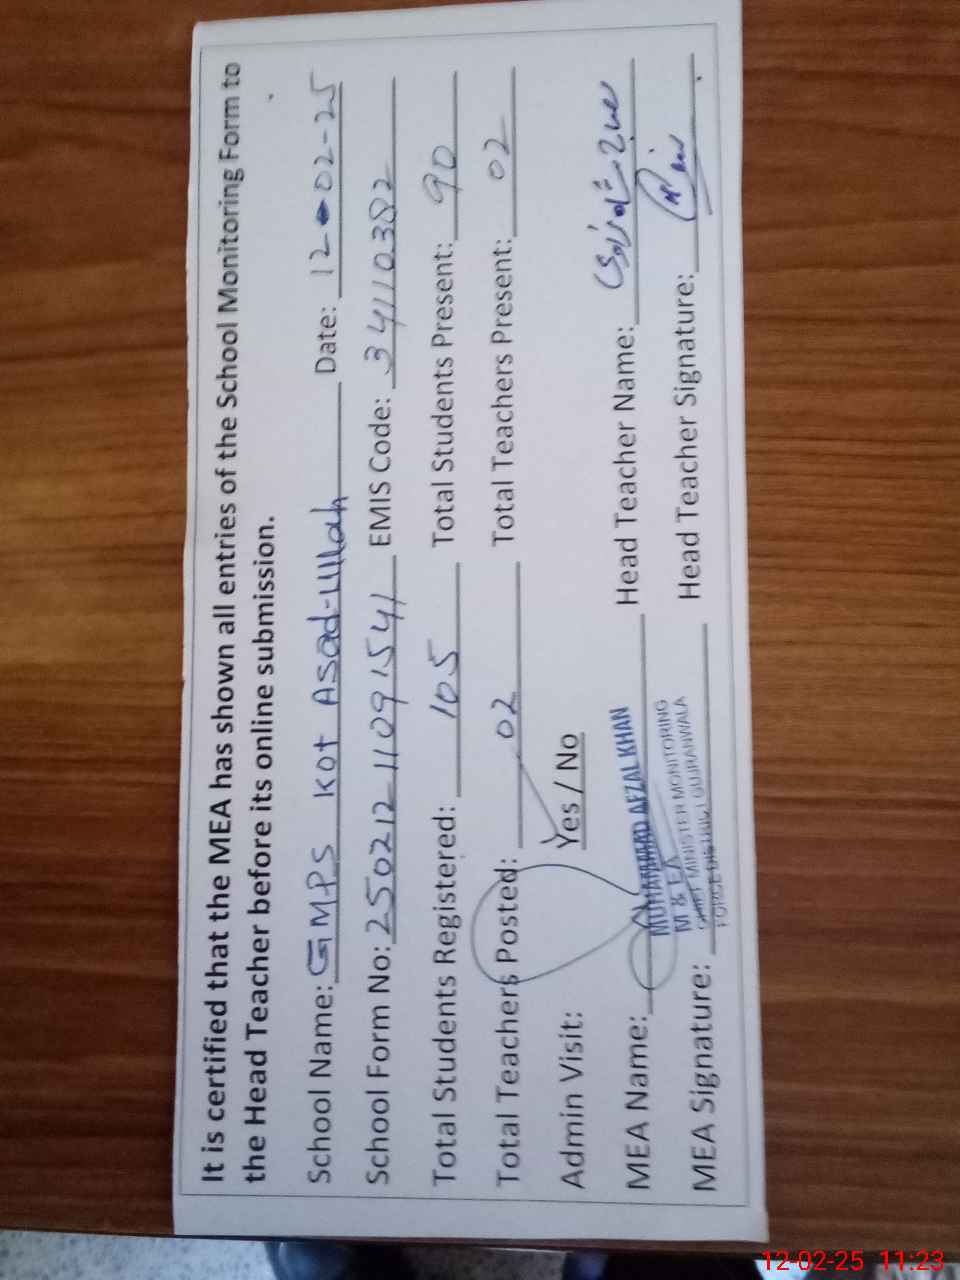 It is certified that the MEA has shown all entries of the School Monitoring Form to
the Head Teacher before its online submission.
School Name: GMPS Kot Asad-ullah Date: 12-02-25
School Form No: 250212-1109 1541 EMIS Code: 34110382
Total Students Registered: 105 Total Students Present: 90
Total Teachers Posted: 02 Total Teachers Present: 02
Admin Visit: Yes / No
MEA Name: MUHAMMAD AFZAL KHAN Head Teacher Name:
M & EA
CHIEF MINISTER MONITORING
FORCE DISTRICT GUJRANWALA
MEA Signature: Head Teacher Signature:
12-02-25 11:23